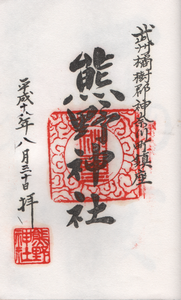 武州橘樹郡神奈川町鎮座
熊野神社
平成十八年八月三十日拝
熊野
神社